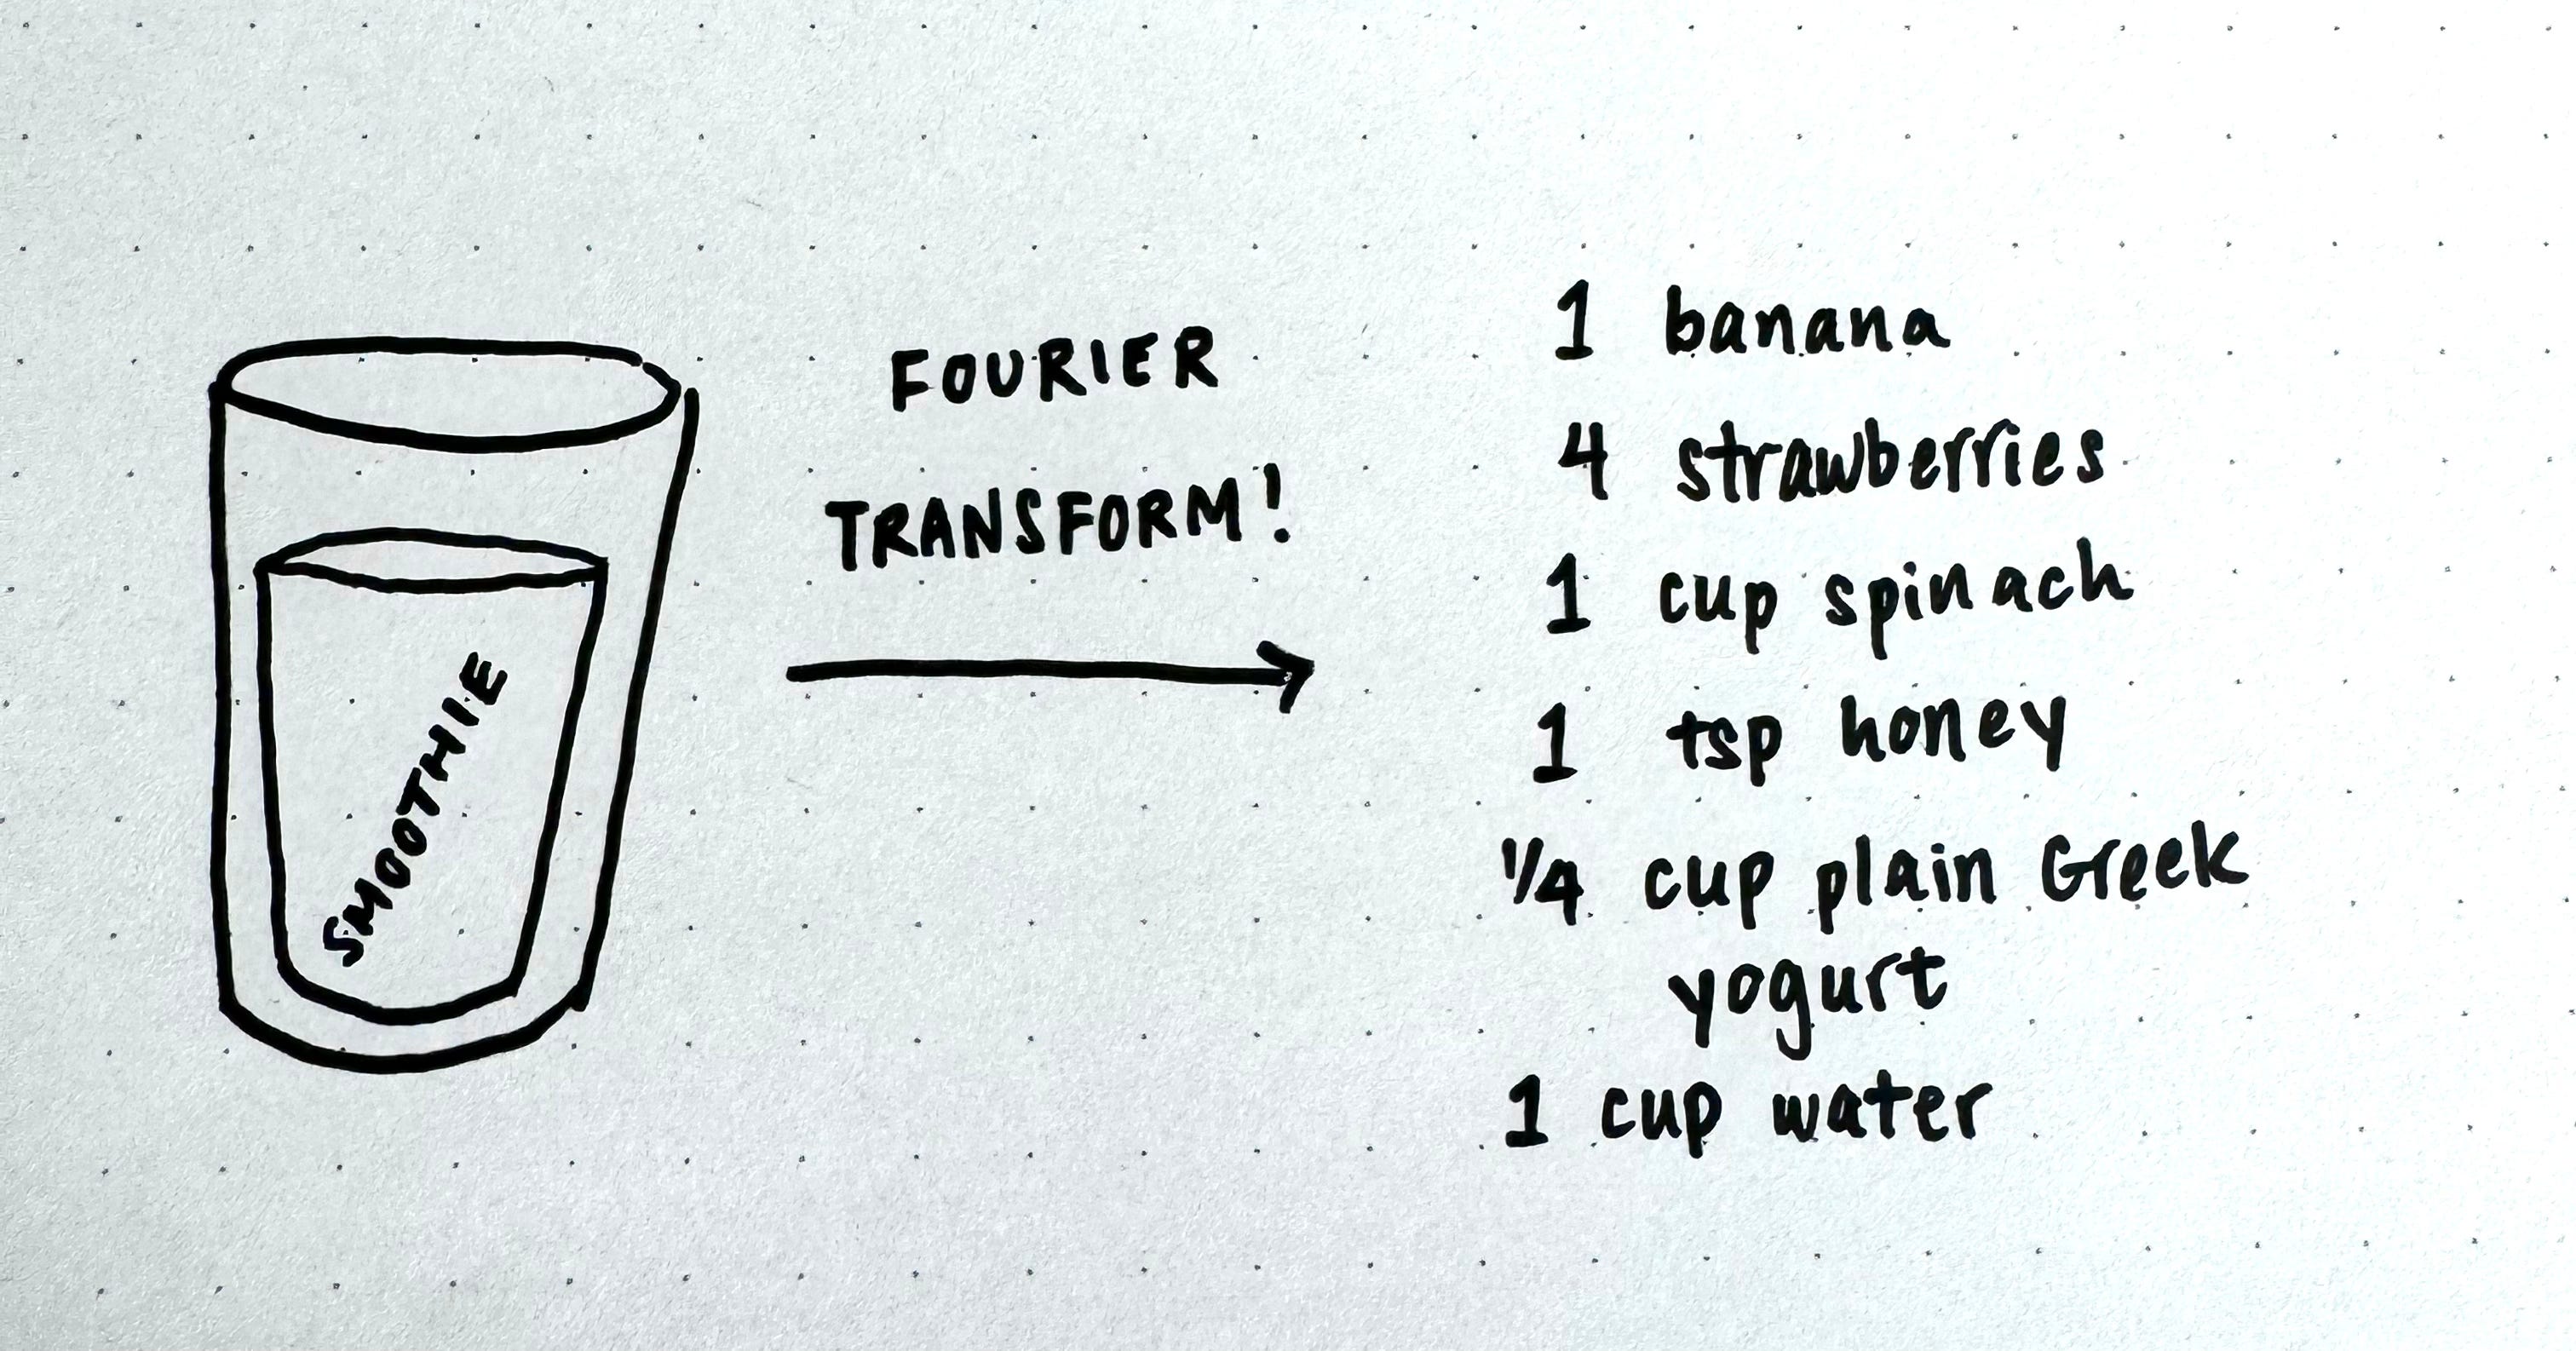 SMOOTHIE
FOURIER
TRANSFORM!
1 banana
4 strawberries
1 cup spinach
1 tsp honey
1/4 cup plain Greek
yogurt
1 cup water